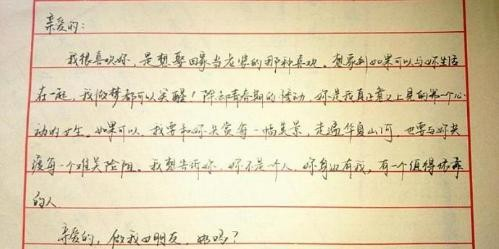 亲爱的:
我很喜欢你，是想娶回家当老婆的那种喜欢。想象到如果可以与你生活
在一起，我做梦都可以笑醒！除却青春期的悸动，你是我真正意义上具的第一个心
动的女生。如果可以，我要和你共赏每一幅美景，走遍华夏山河，也要与你共
渡每个难关险阻。我想告诉你，你不是一个人，你身边有我，有一个值得依靠
的人
亲爱的，做我女朋友，好吗？